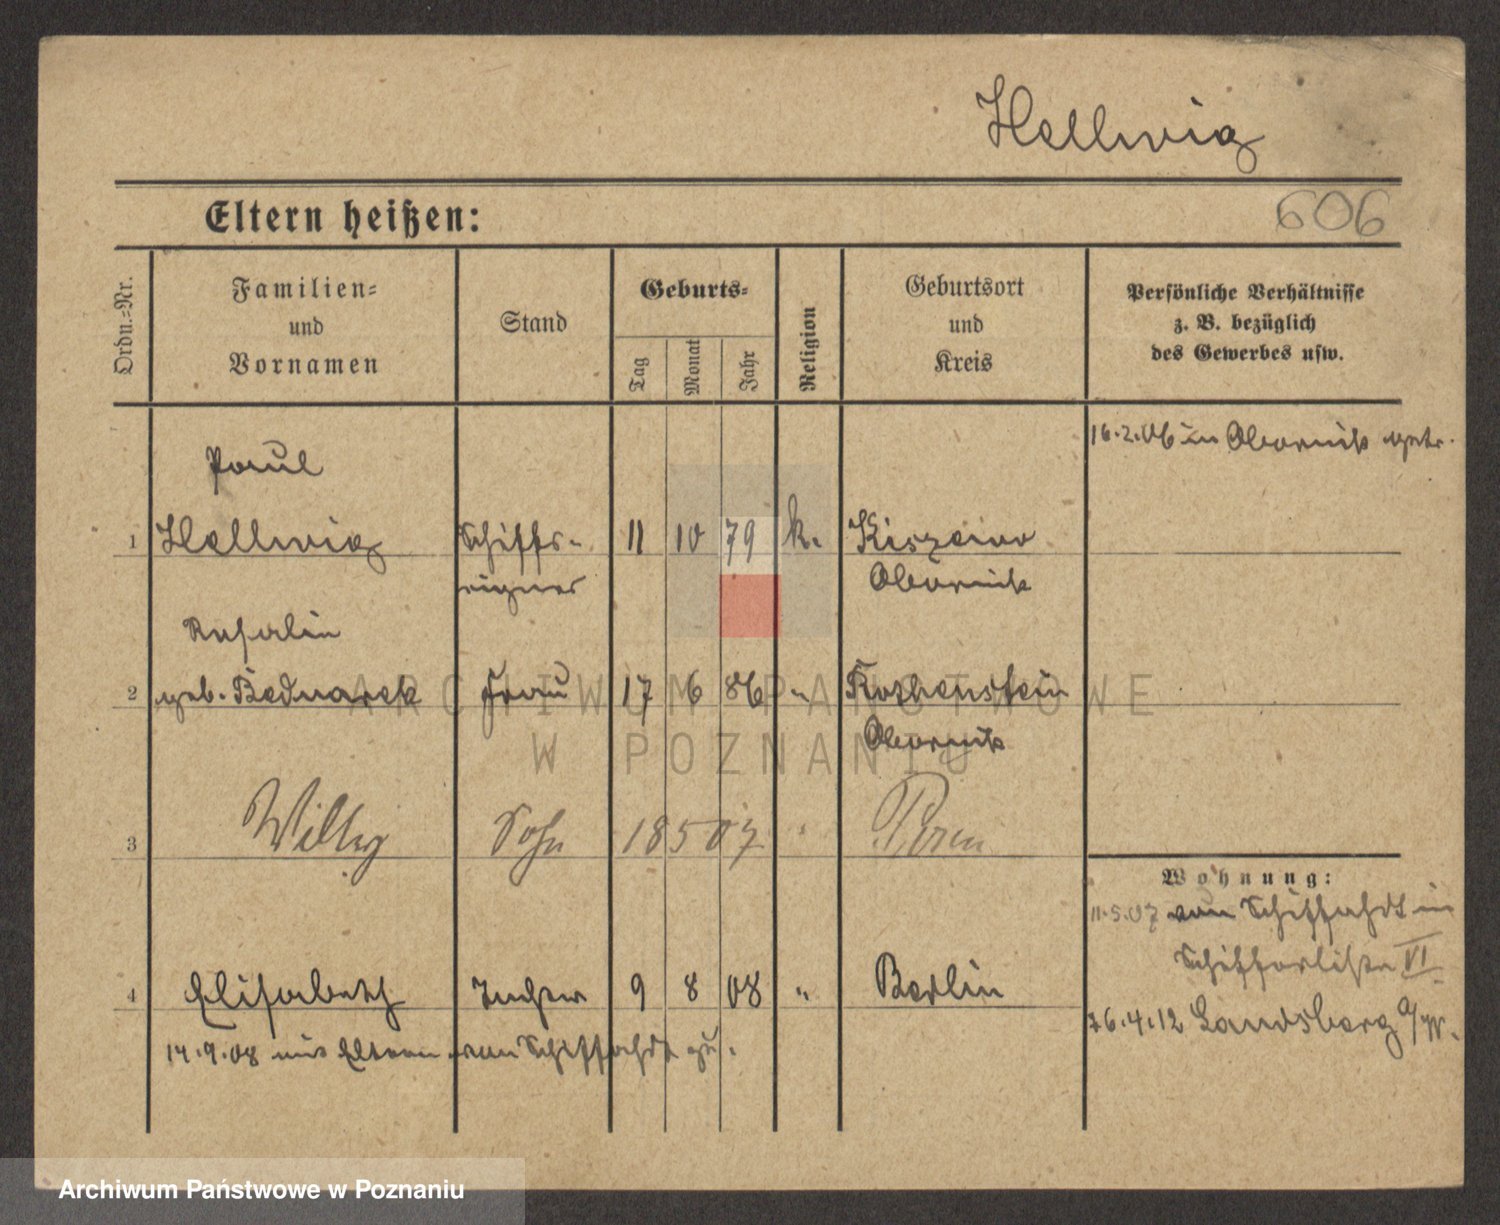 Hellwig
Eltern heißen:
606
Ordn.-Nr.
Familien-
und
Vornamen
Stand
Geburts-
Tag
Monat
Jahr
Religion
Geburtsort
und
Kreis
Persönliche Verhältnisse
z. B. bezüglich
des Gewerbes usw.
16.2.06 in Obornik getr.
Paul
1 Hellwig Schiffs- 11 10 79 k. Kiszewo
eigner Obornik
Rosalie
2 geb. Bednarek Frau 17 6 86 " Rothenstein
Obornik
3 Willy Sohn 18 5 07 " Posen
Wohnung:
11.5.07 von Schiffahrt in
Schifferliste VI
4 Elisabeth Tochter 9 8 08 " Berlin
26.4.12 Landsberg a/W.
14.9.08 mit Eltern von Schiffahrt zu.
ARCHIWUM PAŃSTWOWE
W POZNANIU
Archiwum Państwowe w Poznaniu